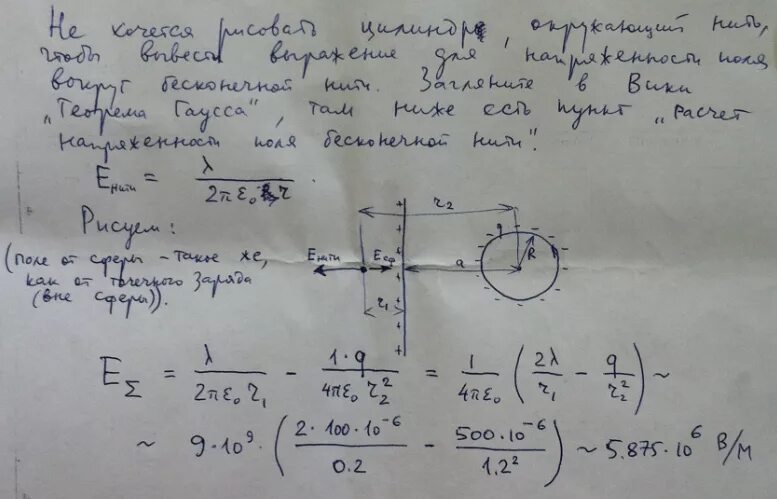 Не хочется рисовать цилиндр, окружающий нить,
чтобы вывести выражение для напряженности поля
вокруг бесконечной нити. Загляните в Вики
„Теорема Гаусса“, там ниже есть пункт „Расчет
напряженности поля бесконечной нити“.
E нити = λ / 2πε₀ r
Рисуем:
(поле от сферы – такое же,
как от точечного заряда
(вне сферы)).
r₂
E нити E сф a q R
r₁
E_Σ = λ / 2πε₀ r₁ − 1·q / 4πε₀ r₂² = 1 / 4πε₀ (2λ / r₁ − q / r₂²) ~
~ 9·10⁹ · (2·100·10⁻⁶ / 0.2 − 500·10⁻⁶ / 1.2²) ~ 5.875·10⁶ В/м